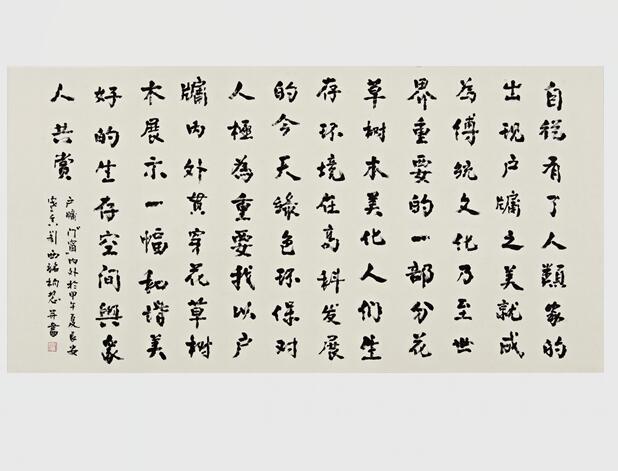 自從有了人類家的
出现户牖之美就成
為傳統文化乃至世
界重要的一部分花
草树木美化人们生
存环境在高科发展
的今天綠色环保对
人極為重要我以户
牖内外贯穿花草树
木展示一幅和谐美
好的生存空间與家
人共赏
户牖门窗内外於甲午夏長安
西 构思并書